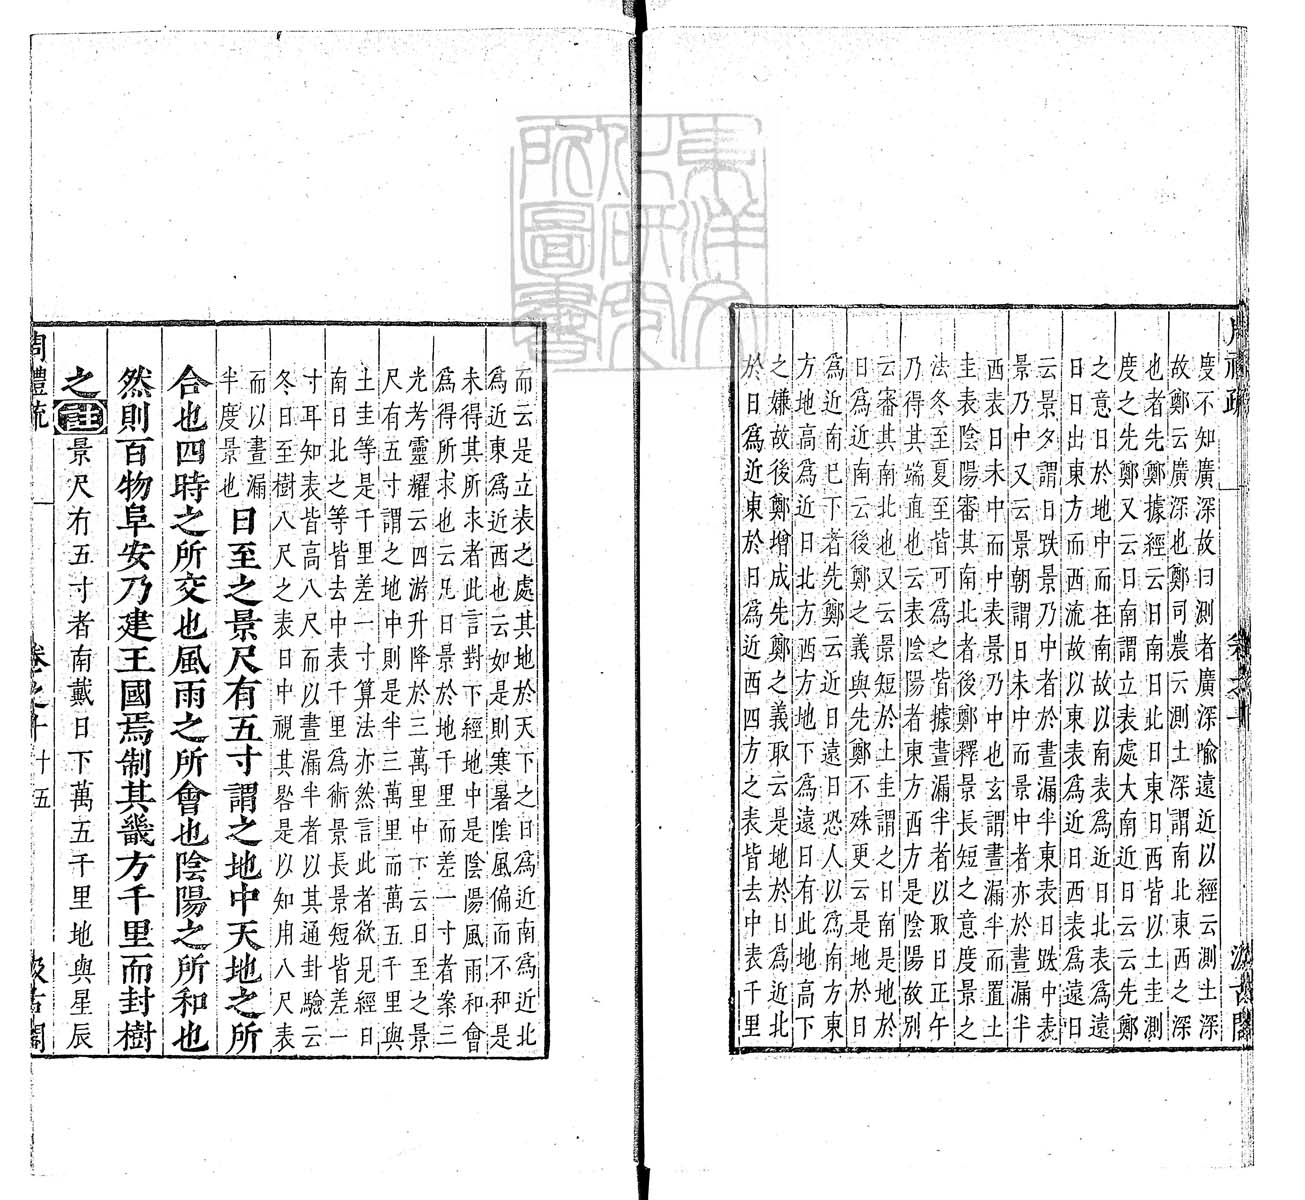 周禮疏
卷之十
汲古閣
度不知廣深故曰測者廣深喻遠近以經云測土深
故鄭云廣深也鄭司農云測土深謂南北東西之深
也者先鄭據經云日南日北日東日西皆以土圭測
度之先鄭又云日南謂立表處大南近日云云先鄭
之意日於地中而在南故以南表爲近日北表爲遠
日日出東方而西流故以東表爲近日西表爲遠日
云景夕謂日跌景乃中者於晝漏半東表日跌中表
景乃中又云景朝謂日未中而景中者亦於晝漏半
西表日未中而中表景乃中也玄謂晝漏半而置土
圭表陰陽審其南北者後鄭釋景長短之意度景之
法冬至夏至皆可爲之皆據晝漏半者以取日正午
乃得其端直也云表陰陽者東方西方是陰陽故別
云審其南北也又云景短於土圭謂之日南是地於
日爲近南云後鄭之義與先鄭不殊更云是地於日
爲近南已下者先鄭云近日遠日恐人以爲南方東
方地高爲近日北方西方地下爲遠日有此地高下
之嫌故後鄭增成先鄭之義取云是地於日爲近北
於日爲近東於日爲近西四方之表皆去中表千里
而云是立表之處其地於天下之日爲近南爲近北
爲近東爲近西也云如是則寒暑陰風偏而不和是
未得其所求者此言對下經地中是陰陽風雨和會
爲得所求也云凡日景於地千里而差一寸者案三
光考靈耀云四游升降於三萬里中下云日至之景
尺有五寸謂之地中則是半三萬里而萬五千里與
土圭等是千里差一寸算法亦然言此者欲見經日
南日北之等皆去中表千里爲術景長景短皆差一
寸耳知表皆高八尺而以晝漏半者以其通卦驗云
冬日至樹八尺之表日中視其晷是以知用八尺表
而以晝漏
半度景也
日至之景尺有五寸謂之地中天地之所
合也四時之所交也風雨之所會也陰陽之所和也
然則百物阜安乃建王國焉制其畿方千里而封樹
之
註
景尺有五寸者南戴日下萬五千里地與星辰
周禮疏
卷之十
十五
汲古閣
東洋文
化研究
所圖書